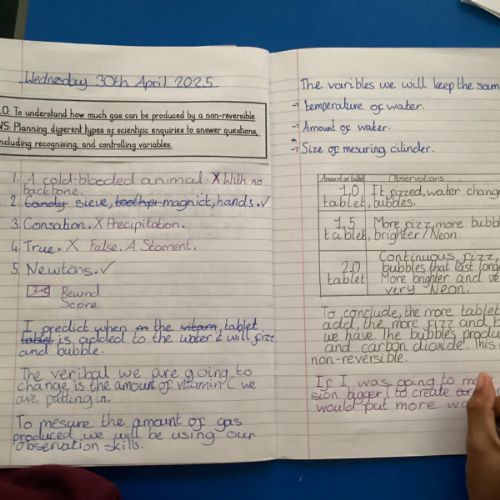 Wednesday 30th April 2025
L.O: To understand how much gas can be produced by a non-reversible
WS: Planning different types of scientific enquiries to answer questions,
including recognising, and controlling variables.
1. A cold-blooded animal. X With no
backbone.
2. sieve, magnict, hands. ✓
3. Consation. X Precipitation.
4. True. X False. A Stament.
5. Newtons. ✓
Rewind
Score
I predict when the tablet
is added to the water it will fizz
and bubble.
The veribal we are going to
change is the amount of vitamin C we
are putting in.
To mesure the amount of gas
produced we will be using our
observation skills.
The varibles we will keep the sam
→ temperature of water.
→ Amount of water.
→ Size of mesuring cilinder.
Amount of tablet Observations
1.0 tablet It fizzed, water chang
bubbles.
1.5 tablet More fizz, more bubb
brighter/Neon.
2.0 tablet Continuous fizz,
bubbles that last longe
More brighter and ve
very Neon.
To conclude, the more tablet
add, the more fizz and b
we have. The bubbles produ
and carbon dioxide. This
non-reversible.
If I was going to ma
sion bigger, to create
would put more wa